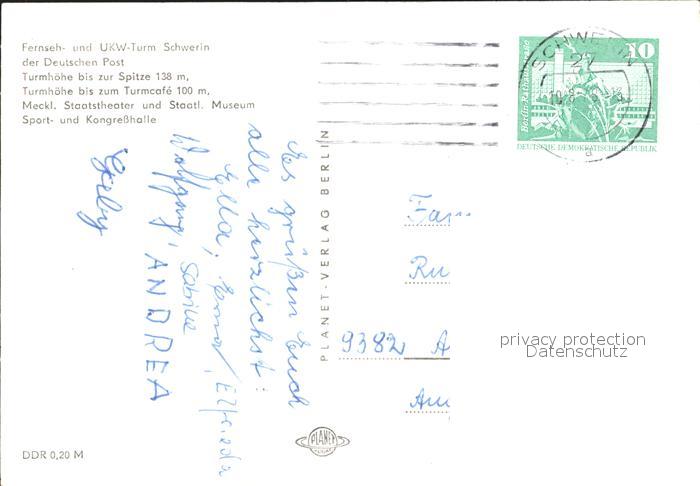 Fernseh- und UKW-Turm Schwerin
der Deutschen Post
Turmhöhe bis zur Spitze 138 m,
Turmhöhe bis zum Turmcafé 100 m,
Meckl. Staatstheater und Staatl. Museum
Sport- und Kongreßhalle
Es grüßen Euch
alle herzlichst:
Ella, Erna, Elfrieda
Wolfgang, Sabine
ANDREA
PLANET-VERLAG BERLIN
SCHWERIN
27
10
DEUTSCHE DEMOKRATISCHE REPUBLIK
Fam
Ru
9382 A
privacy protection
Datenschutz
PLANET
DDR 0,20 M